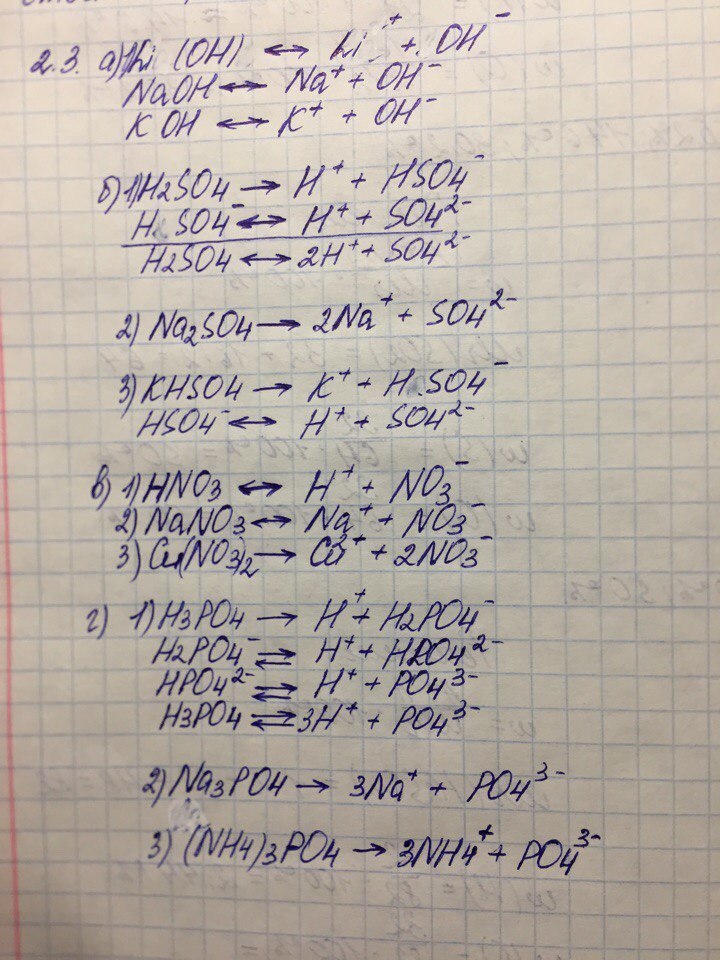 2.3. а) 1) Li (OH) ↔ Li⁺ + OH⁻
NaOH ↔ Na⁺ + OH⁻
KOH ↔ K⁺ + OH⁻
б) 1) H2SO4 → H⁺ + HSO4⁻
H SO4⁻ ↔ H⁺ + SO4²⁻
H2SO4 ↔ 2H⁺ + SO4²⁻
2) Na2SO4 → 2Na⁺ + SO4²⁻
3) KHSO4 → K⁺ + HSO4⁻
HSO4⁻ ↔ H⁺ + SO4²⁻
в) 1) HNO3 ↔ H⁺ + NO3⁻
2) NaNO3 ↔ Na⁺ + NO3⁻
3) Cu(NO3)2 → Cu²⁺ + 2NO3⁻
г) 1) H3PO4 → H⁺ + H2PO4⁻
H2PO4⁻ ⇄ H⁺ + HPO4²⁻
HPO4²⁻ ⇄ H⁺ + PO4³⁻
H3PO4 ⇄ 3H⁺ + PO4³⁻
2) Na3PO4 → 3Na⁺ + PO4³⁻
3) (NH4)3PO4 → 3NH4⁺ + PO4³⁻